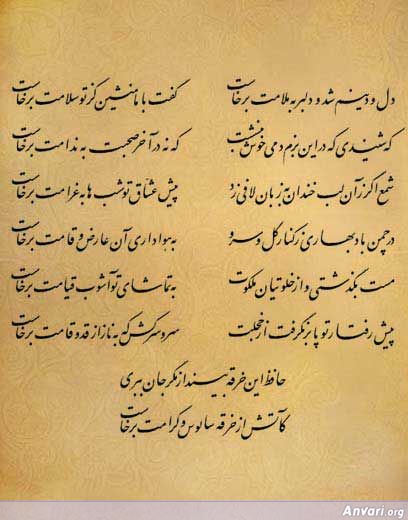 دل و دینم شد و دلبر به ملامت برخاست گفت با ما منشین کز تو سلامت برخاست
که شنیدی که در این بزم دمی خوش بنشست که نه در آخر صحبت به ندامت برخاست
شمع اگر زآن لب خندان به زبان لافی زد پیش عشاق تو شب ها به غرامت برخاست
در چمن باد بهاری ز کنار گل و سرو به هواداری آن عارض و قامت برخاست
مست بگذشتی و از خلوتیان ملکوت به تماشای تو آشوب قیامت برخاست
پیش رفتار تو پا برنگرفت از خجلت سرو سرکش که به ناز از قد و قامت برخاست
حافظ این خرقه بینداز مگر جان ببری
کآتش از خرقه سالوس و کرامت برخاست
Anvari.org